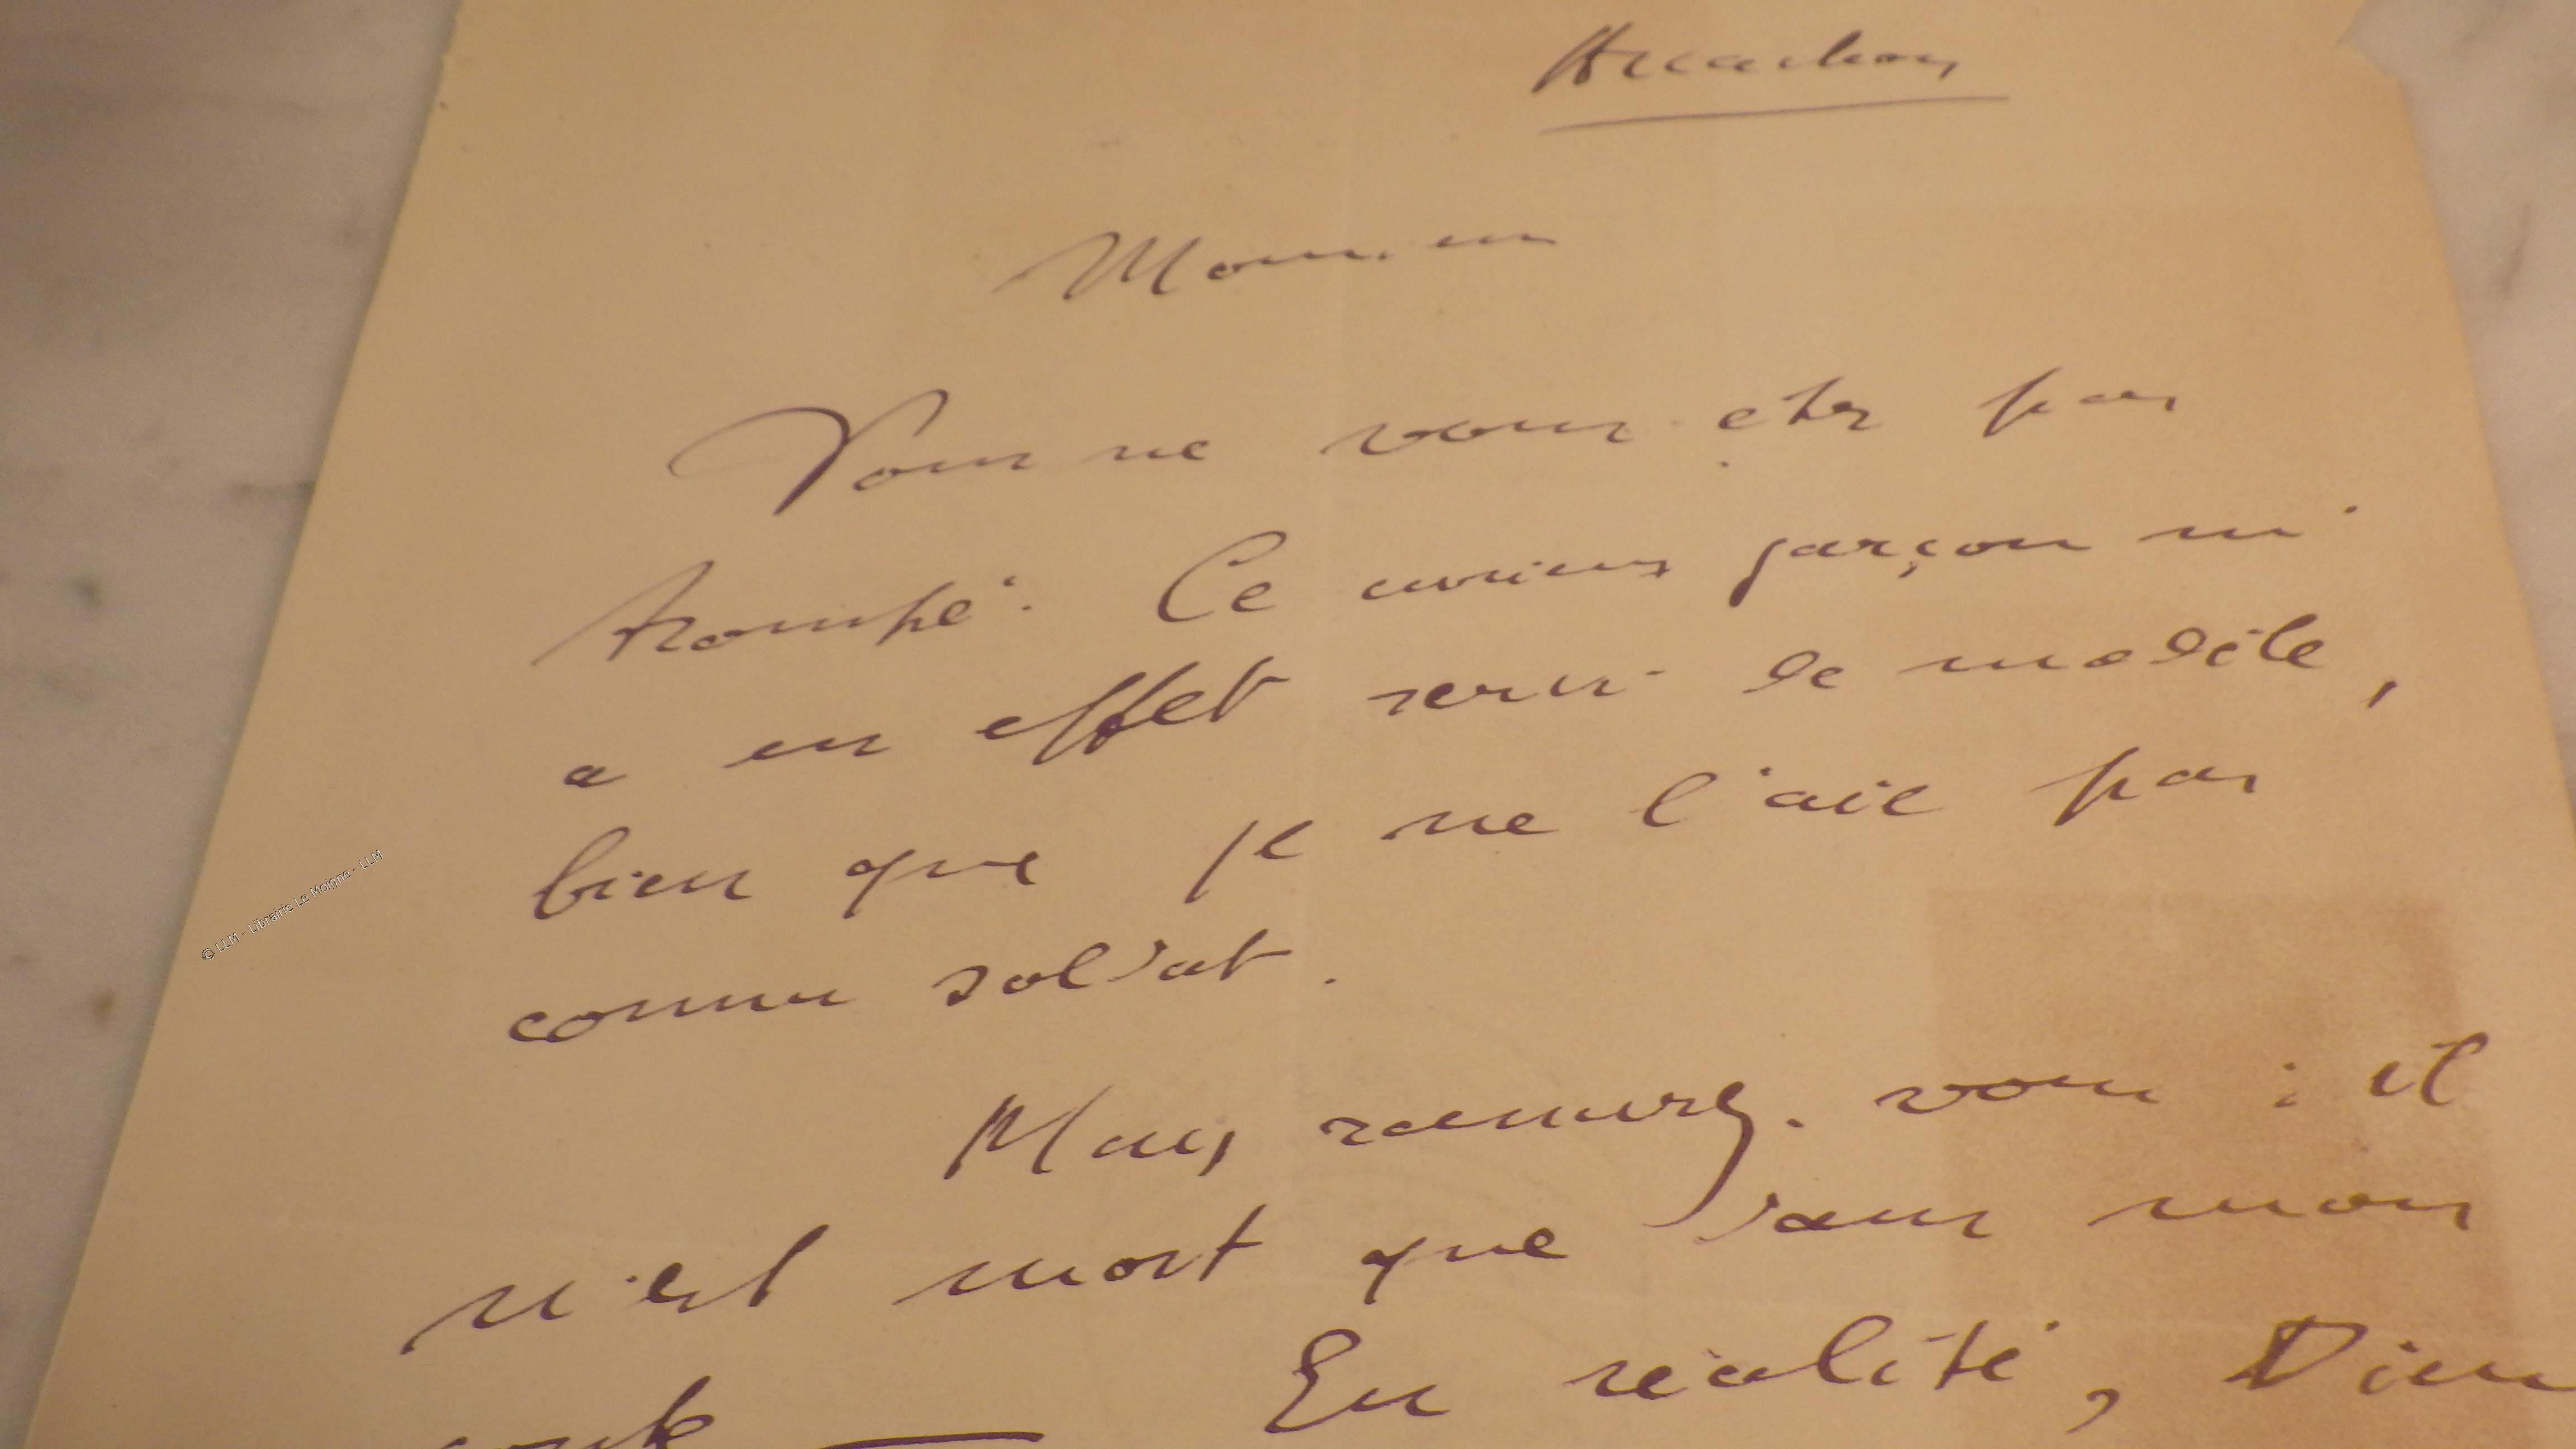 Arcachon
Monsieur
Vous ne vous etes pas
trompé. Ce curieux garçon m'
a en effet servi de modèle,
bien que je ne l'aie pas
connu soldat.
Mais rassurez-vous : il
n'est mort que dans mon
conte — En réalité, Dieu
© LLM - Librairie Le Moigne - LLM